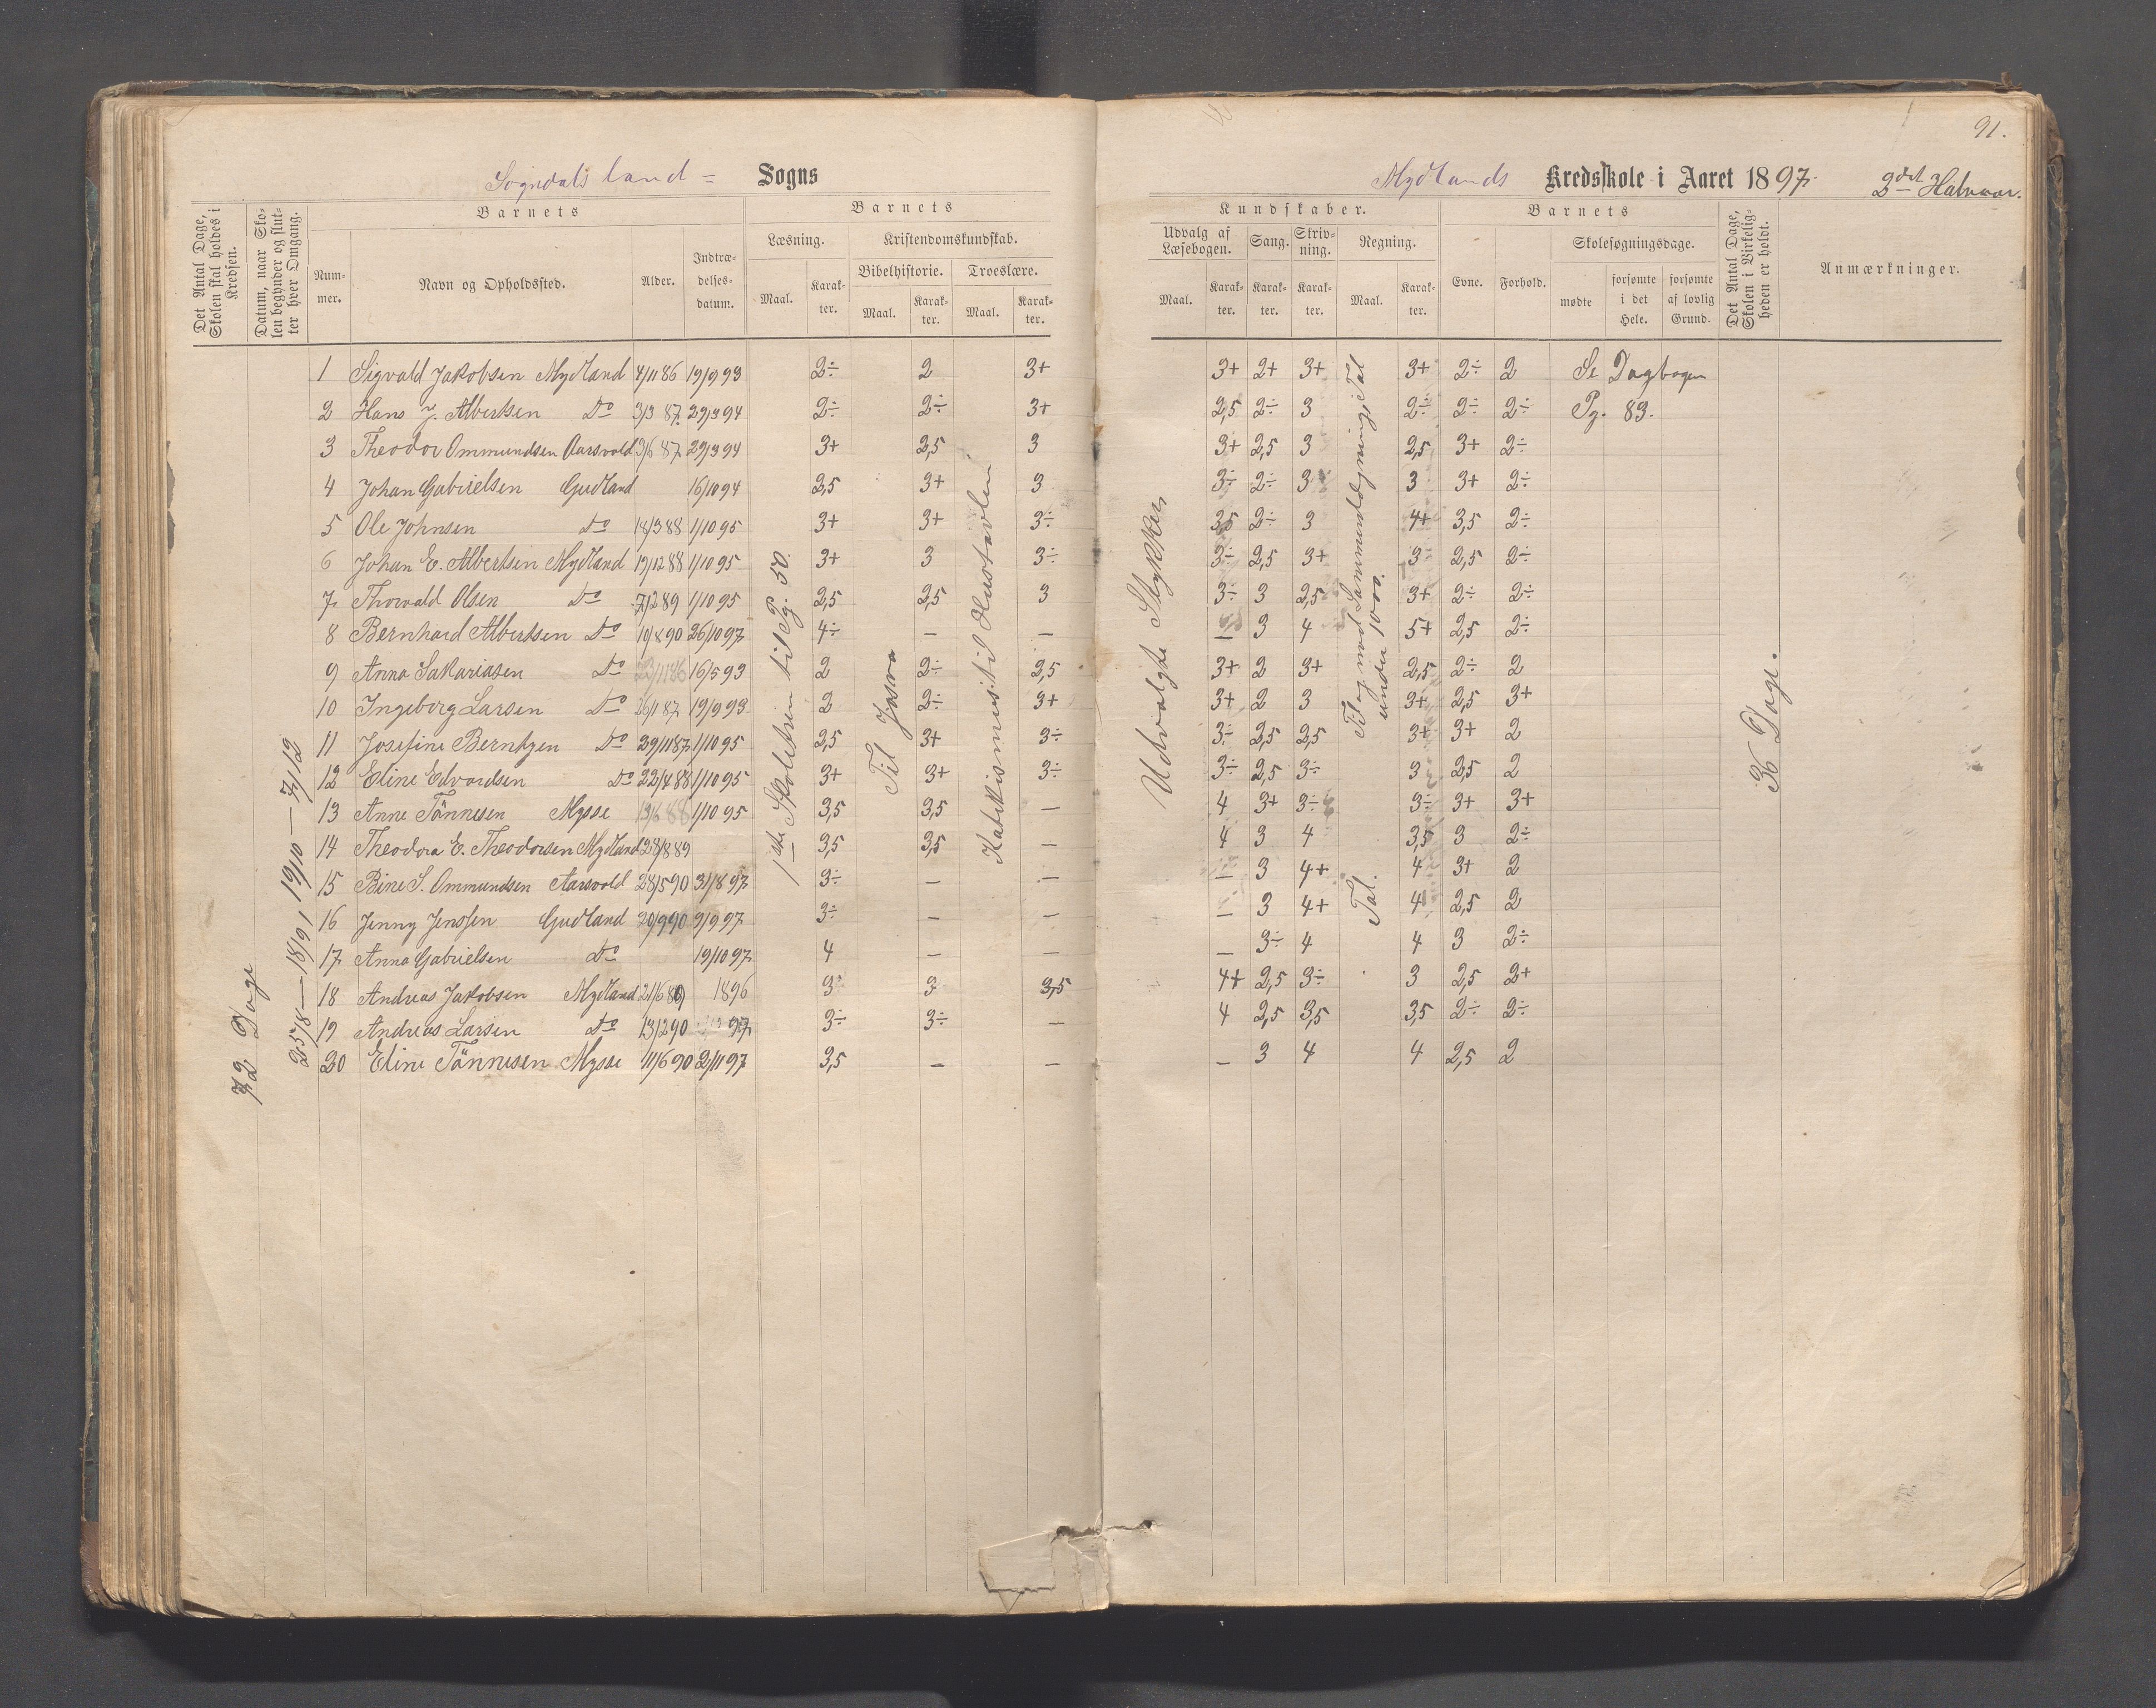 91.
Sogndals land = Sogns
Mydlands Kredsskole i Aaret 1897. 2det Halvaar.
Det Antal Dage, Skolen skal holdes i Kredsen.
Datum, naar Skolen begynder og slutter hver Omgang.
Barnets
Nummer.
Navn og Opholdssted.
Alder.
Indtrædelsesdatum.
Barnets
Læsning.
Maal.
Karakter.
Kristendomskundskab.
Bibelhistorie.
Maal.
Karakter.
Troeslære.
Maal.
Karakter.
Kundskaber.
Udvalg af Læsebogen.
Maal.
Karakter.
Sang.
Karakter.
Skrivning.
Karakter.
Regning.
Maal.
Karakter.
Barnets
Evne.
Forhold.
Skolesøgningsdage.
mødte
forsømte i det Hele.
forsømte af lovlig Grund.
Det Antal Dage, Skolen i Virkeligheden er holdt.
Anmærkninger.
72 Dage
25/8 — 18/9 19/10 — 7/12
1ste Skoletrin til Pg. 50.
Til Josva
Katekismus: til Hustavlen
Udvalgte Stykker
Til og med Sammenlægning i Tal under 1000.
Tal.
36 Dage.
1 Sigvald Jakobsen Mydland 4/11 86 19/9 93 2÷ 2 3+ 3+ 2+ 3+ 3+ 2÷ 2 Se Dagbogen
2 Hans J. Albertsen Do 3/3 87. 29/3 94 2÷ 2÷ 3+ 2,5 2÷ 3 2÷ 2÷ 2÷ Pg. 83.
3 Theodor Ommundsen Aarsvold 3/6 87 29/3 94 3+ 2,5 3 3+ 2,5 3 2,5 3+ 2÷
4 Johan Gabrielsen Gudland 16/10 94 2,5 3+ 3 3÷ 2÷ 3 3 3+ 2÷
5 Ole Johnsen do 18/3 88 1/10 95 3+ 3+ 3÷ 3,5 2÷ 3 4+ 3,5 2÷
6 Johan E. Albertsen Mydland 19/12 88 1/10 95 3+ 3 3÷ 3÷ 2,5 3+ 3÷ 2,5 2÷
7 Thorvald Olsen Do 7/2 89 1/10 95 2,5 2,5 3 3÷ 3 2,5 3+ 2÷ 2÷
8 Bernhard Albertsen Do 10/8 90 26/10 97 4÷ — — — 3 4 5+ 2,5 2÷
9 Anna Sakariasen Do 16/5 93 2 2÷ 2,5 3+ 2 3+ 2,5 2÷ 2
10 Ingeborg Larsen Do 26/1 87 19/9 93 2 2÷ 3+ 3+ 2 3 3+ 2,5 3+
11 Josefine Berntzen Do 29/11 87 1/10 95 2,5 3+ 3÷ 3÷ 2,5 2,5 3+ 3+ 2
12 Eline Edvardsen Do 22/4 88 1/10 95 3+ 3+ 3÷ 3÷ 2,5 3÷ 3 2,5 2
13 Anne Tönnesen Mysse 13/6 88 1/10 95 3,5 3,5 — 4 3+ 3÷ 3÷ 3+ 3+
14 Theodora E. Theodorsen Mydland 28/8 89 3,5 3,5 — 4 3 4 3,5 3 2÷
15 Bine S. Ommundsen Aarsvold 28/5 90 31/8 97 3÷ — — — 3 4+ 4 3+ 2
16 Jenny Jenssen Gudland 20/9 90 9/9 97 3÷ — — — 3 4+ 4 2,5 2
17 Anna Gabrielsen Do 19/10 97 4 — — — 3÷ 4 4 3 2÷
18 Andreas Jakobsen Mydland 21/6 89 1896 3 3 3,5 4+ 2,5 3÷ 3 2,5 2+
19 Andreas Larsen Do 13/2 90 97 3÷ 3÷ — 4 2,5 3,5 3,5 2÷ 2÷
20 Eline Tönnesen Mysse 11/6 90 2/11 97 3,5 — — — 3 4 4 2,5 2